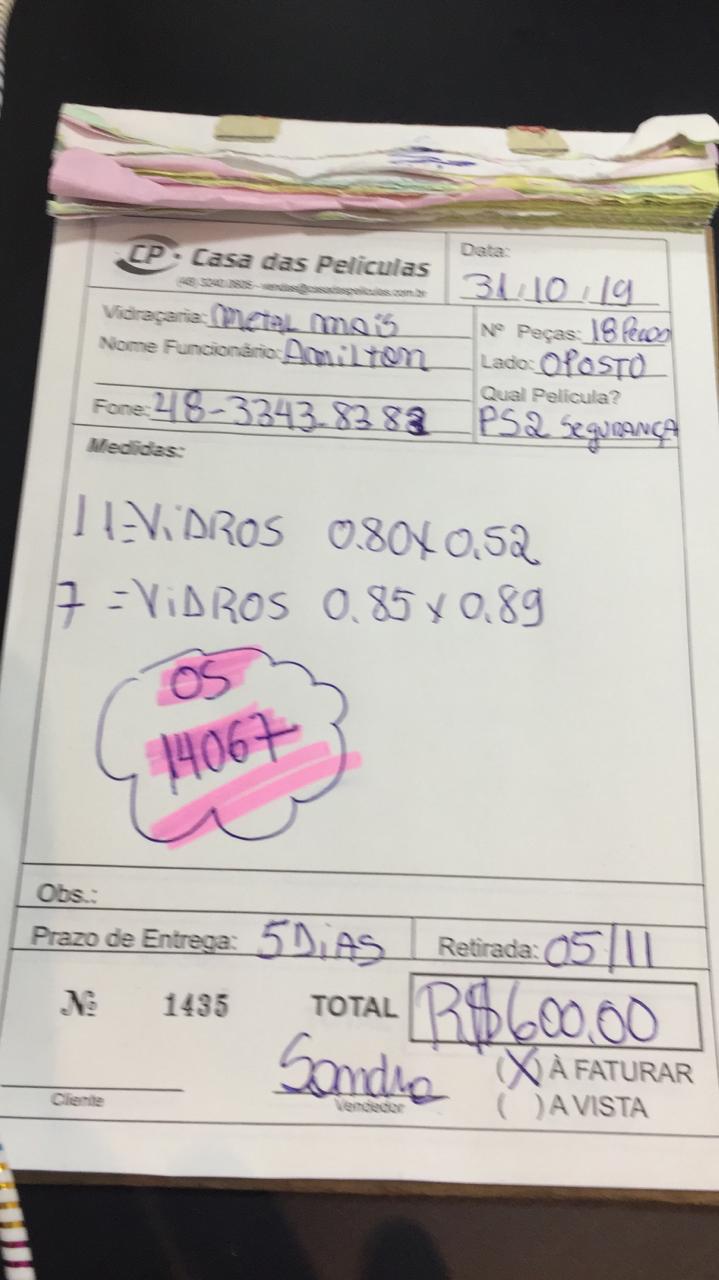 CP · Casa das Películas
(48) 3240.0805 - vendas@casadaspeliculas.com.br
Data:
31.10.19
Vidraçaria: metal mais
Nome Funcionário: Amilton
Fone: 48-3343-8382
Nº Peças: 18 Peças
Lado: OPOSTO
Qual Película?
PS2 SEGURANÇA
Medidas:
11=ViDROS 0.80x0.52
7 =ViDROS 0.85 x 0.89
OS
14067
Obs.:
Prazo de Entrega: 5 DiAS
Retirada: 05/11
Nº 1435
TOTAL R$600.00
Sandra
(X) À FATURAR
Cliente
Vendedor
( ) A VISTA